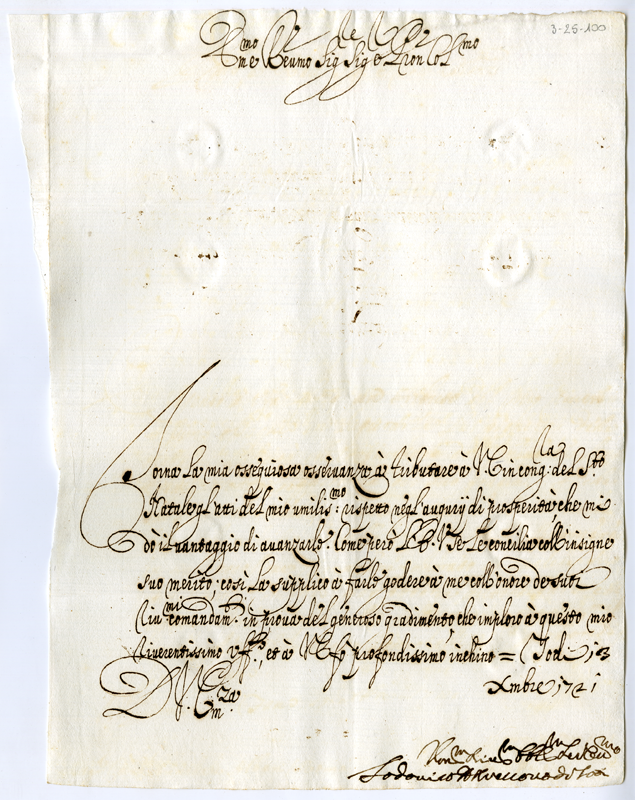 3-25-100
Em.mo e Reu.mo Sig.r Sig.re e Pron Col.mo
Torna la mia ossequiosa osseruanza à tributare à V. E in cong.la del S.to
Natale gl'atti del mio umilis.mo rispetto negl'augurij di prosperità, che mi
dò il uantaggio di auanzarle. Come però l'E. V se le concilia coll'insigne
suo merito; così la supplico à farle godere à me coll'onore de suoi
riu.mi comandam.ti in proua del generoso gradimento, che imploro à questo mio
riuerentissimo uff.o, et à V E fo profondissimo inchino = Lodi 13
Xmbre 1721
D. V. Em.za
Lodovico Vescouo di Lodi